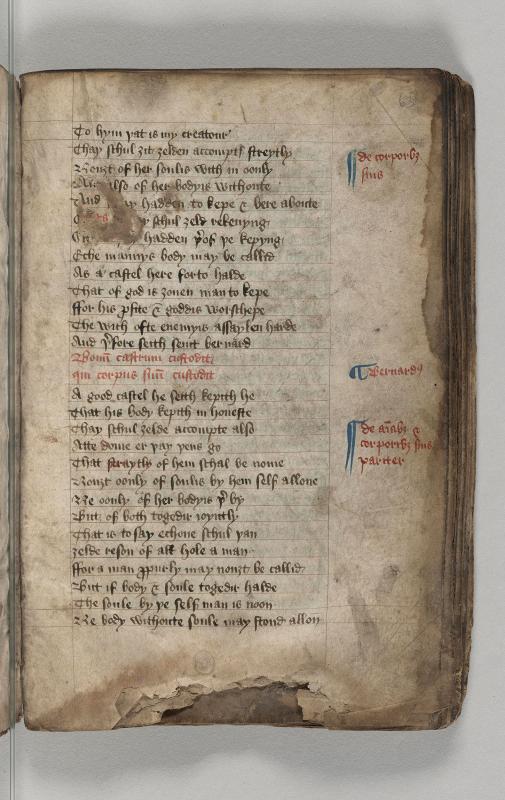 To hym þat is my creatour
Thay schul ȝit ȝelden accomptꝭ streytly
Nouȝt of her soulis with in oonly
also of her bodyis withoute
And hadden to kepe & bere aboute
schul ȝeld rekenyng
hadden þ͛of þe kepyng
Eche mannys body may be callid
As a castel here forto halde
That of god is ȝouen man to kepe
ffor his ꝓfite & goddis worschepe
The wich ofte enemyis assaylen harde
And þ͛fore seith seint bernard
Bonū castrum custodit
qui corpus suū custodit
A good castel he seith kepith he
That his body kepith in honeste
Thay schul ȝelde accompte also
Atte dome er þay þens go
That straytly of hem schal be nome
Nouȝt oonly of soulis by hem self allone
Ne oonly of her bodyis þ͛ by
But of both togedir ioyntly
That is to say echone schul þan
ȝelde reson of all hole a man
ffor a man ꝓpurly may nouȝt be callid
But if body & soule togedir halde
The soule by þe self man is noon
Ne body withoute soule may stond allon
de corporibꝫ suis
Bernardꝰ
de aīabꝫ &
corporibꝫ suis
pariter